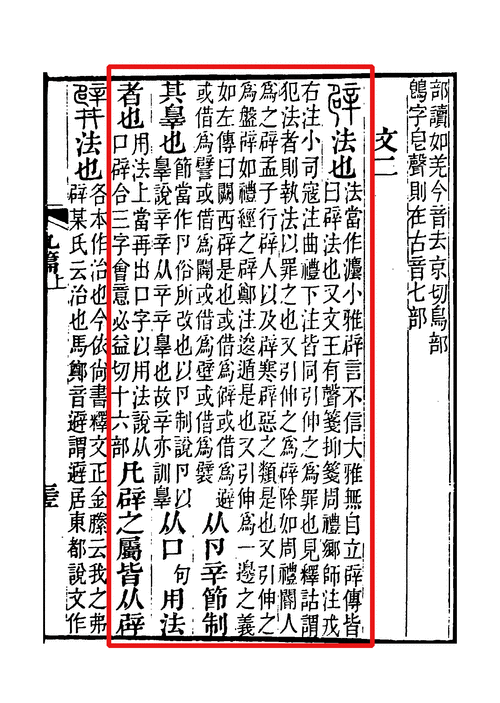 部讀如羌今音去京切鳥部
鴖字皀聲則在古音七部
文二
辟法也法當作灋小雅辟言不信大雅無自立辟傳皆
曰辟法也又文王有聲箋抑箋周禮鄉師注戎
右注小司寇注曲禮下注皆同引伸之爲罪也見釋詁謂
犯法者則執法以罪之也又引伸之爲辟除如周禮閽人
爲之辟孟子行辟人以及辟寒辟惡之類是也又引伸之
爲盤辟如禮經之辟鄭注逡遁是也又引伸爲一邊之義
如左傳曰闕西辟是也或借爲僻或借爲避
或借爲譬或借爲闢或借爲壁或借爲襞
从卪辛節制
其辠也
節當作卪俗所改也以卪制說卪以
辠說辛辛从䇂䇂辠也故辛亦訓辠
从口句用法
者也
用法上當再出口字以用法說从
口辟合三字會意必益切十六部
凡辟之屬皆从辟
𨐨法也各本作治也今依尚書釋文正金縢云我之弗
辟某氏云治也馬鄭音避謂避居東都說文作
九篇上